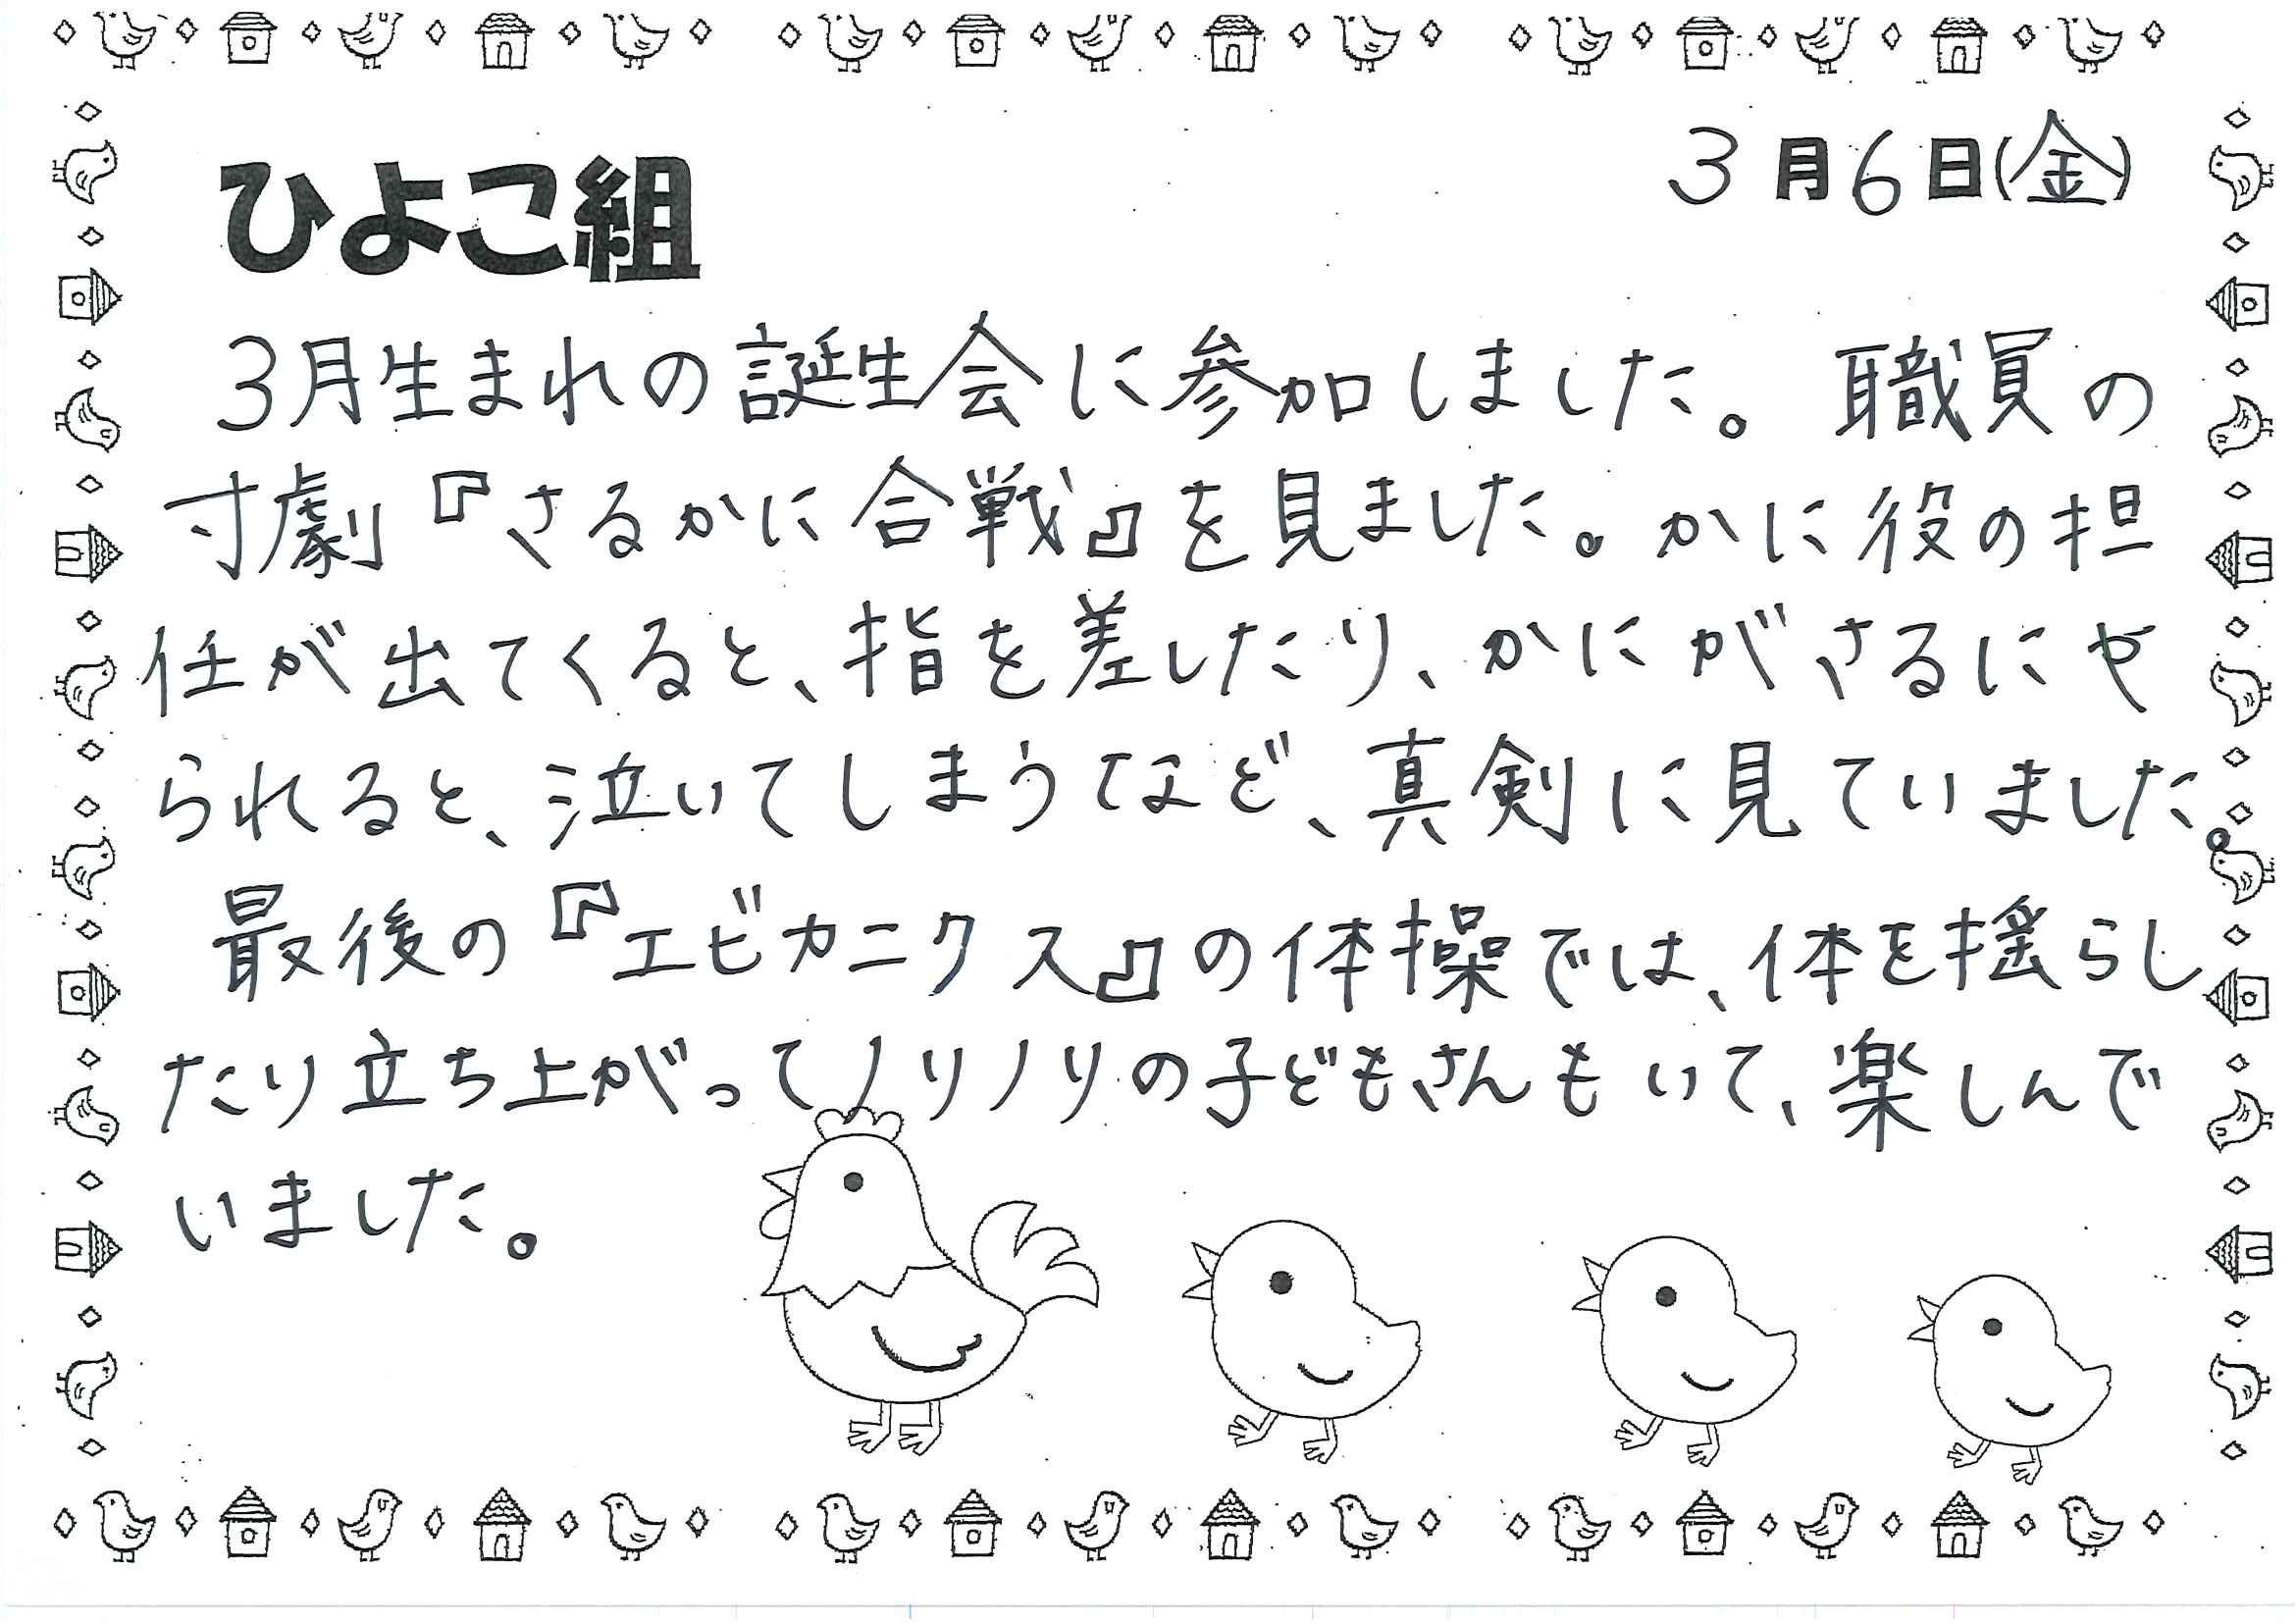 3月6日(金)
ひよこ組
3月生まれの誕生会に参加しました。職員の
寸劇『さるかに合戦』を見ました。かに役の担
任が出てくると、指を差したり、かにがさるにや
られると、泣いてしまうなど、真剣に見ていました。
最後の『エビカニクス』の体操では、体を揺らし
たり立ち上がってノリノリの子どもさんもいて、楽しんで
いました。